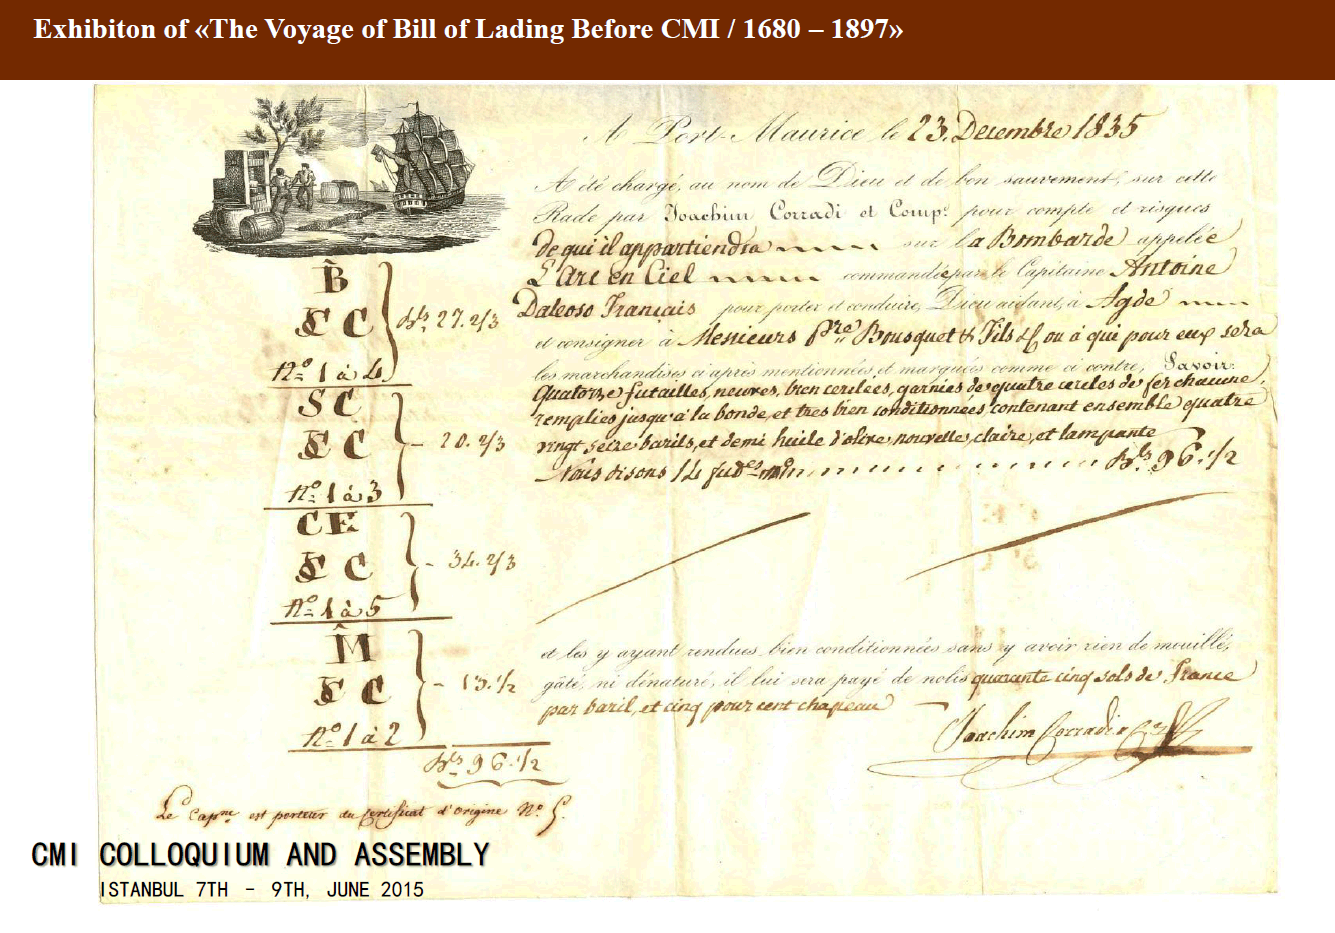 Exhibiton of «The Voyage of Bill of Lading Before CMI / 1680 – 1897»
A Port-Maurice le 23. Decembre 1835
A été chargé, au nom de Dieu et de bon sauvement, sur cette
Rade par Joachim Corradi et Comp.e pour compte et risques
de qui il appartiendra sur la Bombarde appelée
L'Arc en Ciel commandée par le Capitaine Antoine
Français pour porter et conduire, Dieu aidant, à Agde
et consigner à Messieurs Bousquet & Fils ou à qui pour eux sera
les marchandises ci après mentionnées et marquées comme ci contre, Savoir
Quatorze futailles, neuves, bien cerclées, garnies de quatre cercles de fer chacune,
remplies jusqu'à la bonde, et tres bien conditionnées, contenant ensemble quatre
vingt seize barils, et demi huile d'olive, nouvelle, claire, et lampante
Nous disons 14 Bls 96. 1/2
B
C
Nº 1 à 4
Bls 27. 2/3
S C
C
Nº 1 à 3
- 20. 2/3
C E
C
Nº 1 à 5
- 34. 2/3
M
C
Nº 1 à 2
- 13. 1/2
Bls 96. 1/2
et les y ayant rendues bien conditionnées sans y avoir rien de mouillé,
gâté, ni dénaturé, il lui sera payé de nolis quarante cinq sols de France
par baril, et cinq pour cent chapeau
Joachim Corradi e C.e
Le Cap.ne est porteur du Certificat d'origine Nº 5.
CMI COLLOQUIUM AND ASSEMBLY
ISTANBUL 7TH - 9TH, JUNE 2015